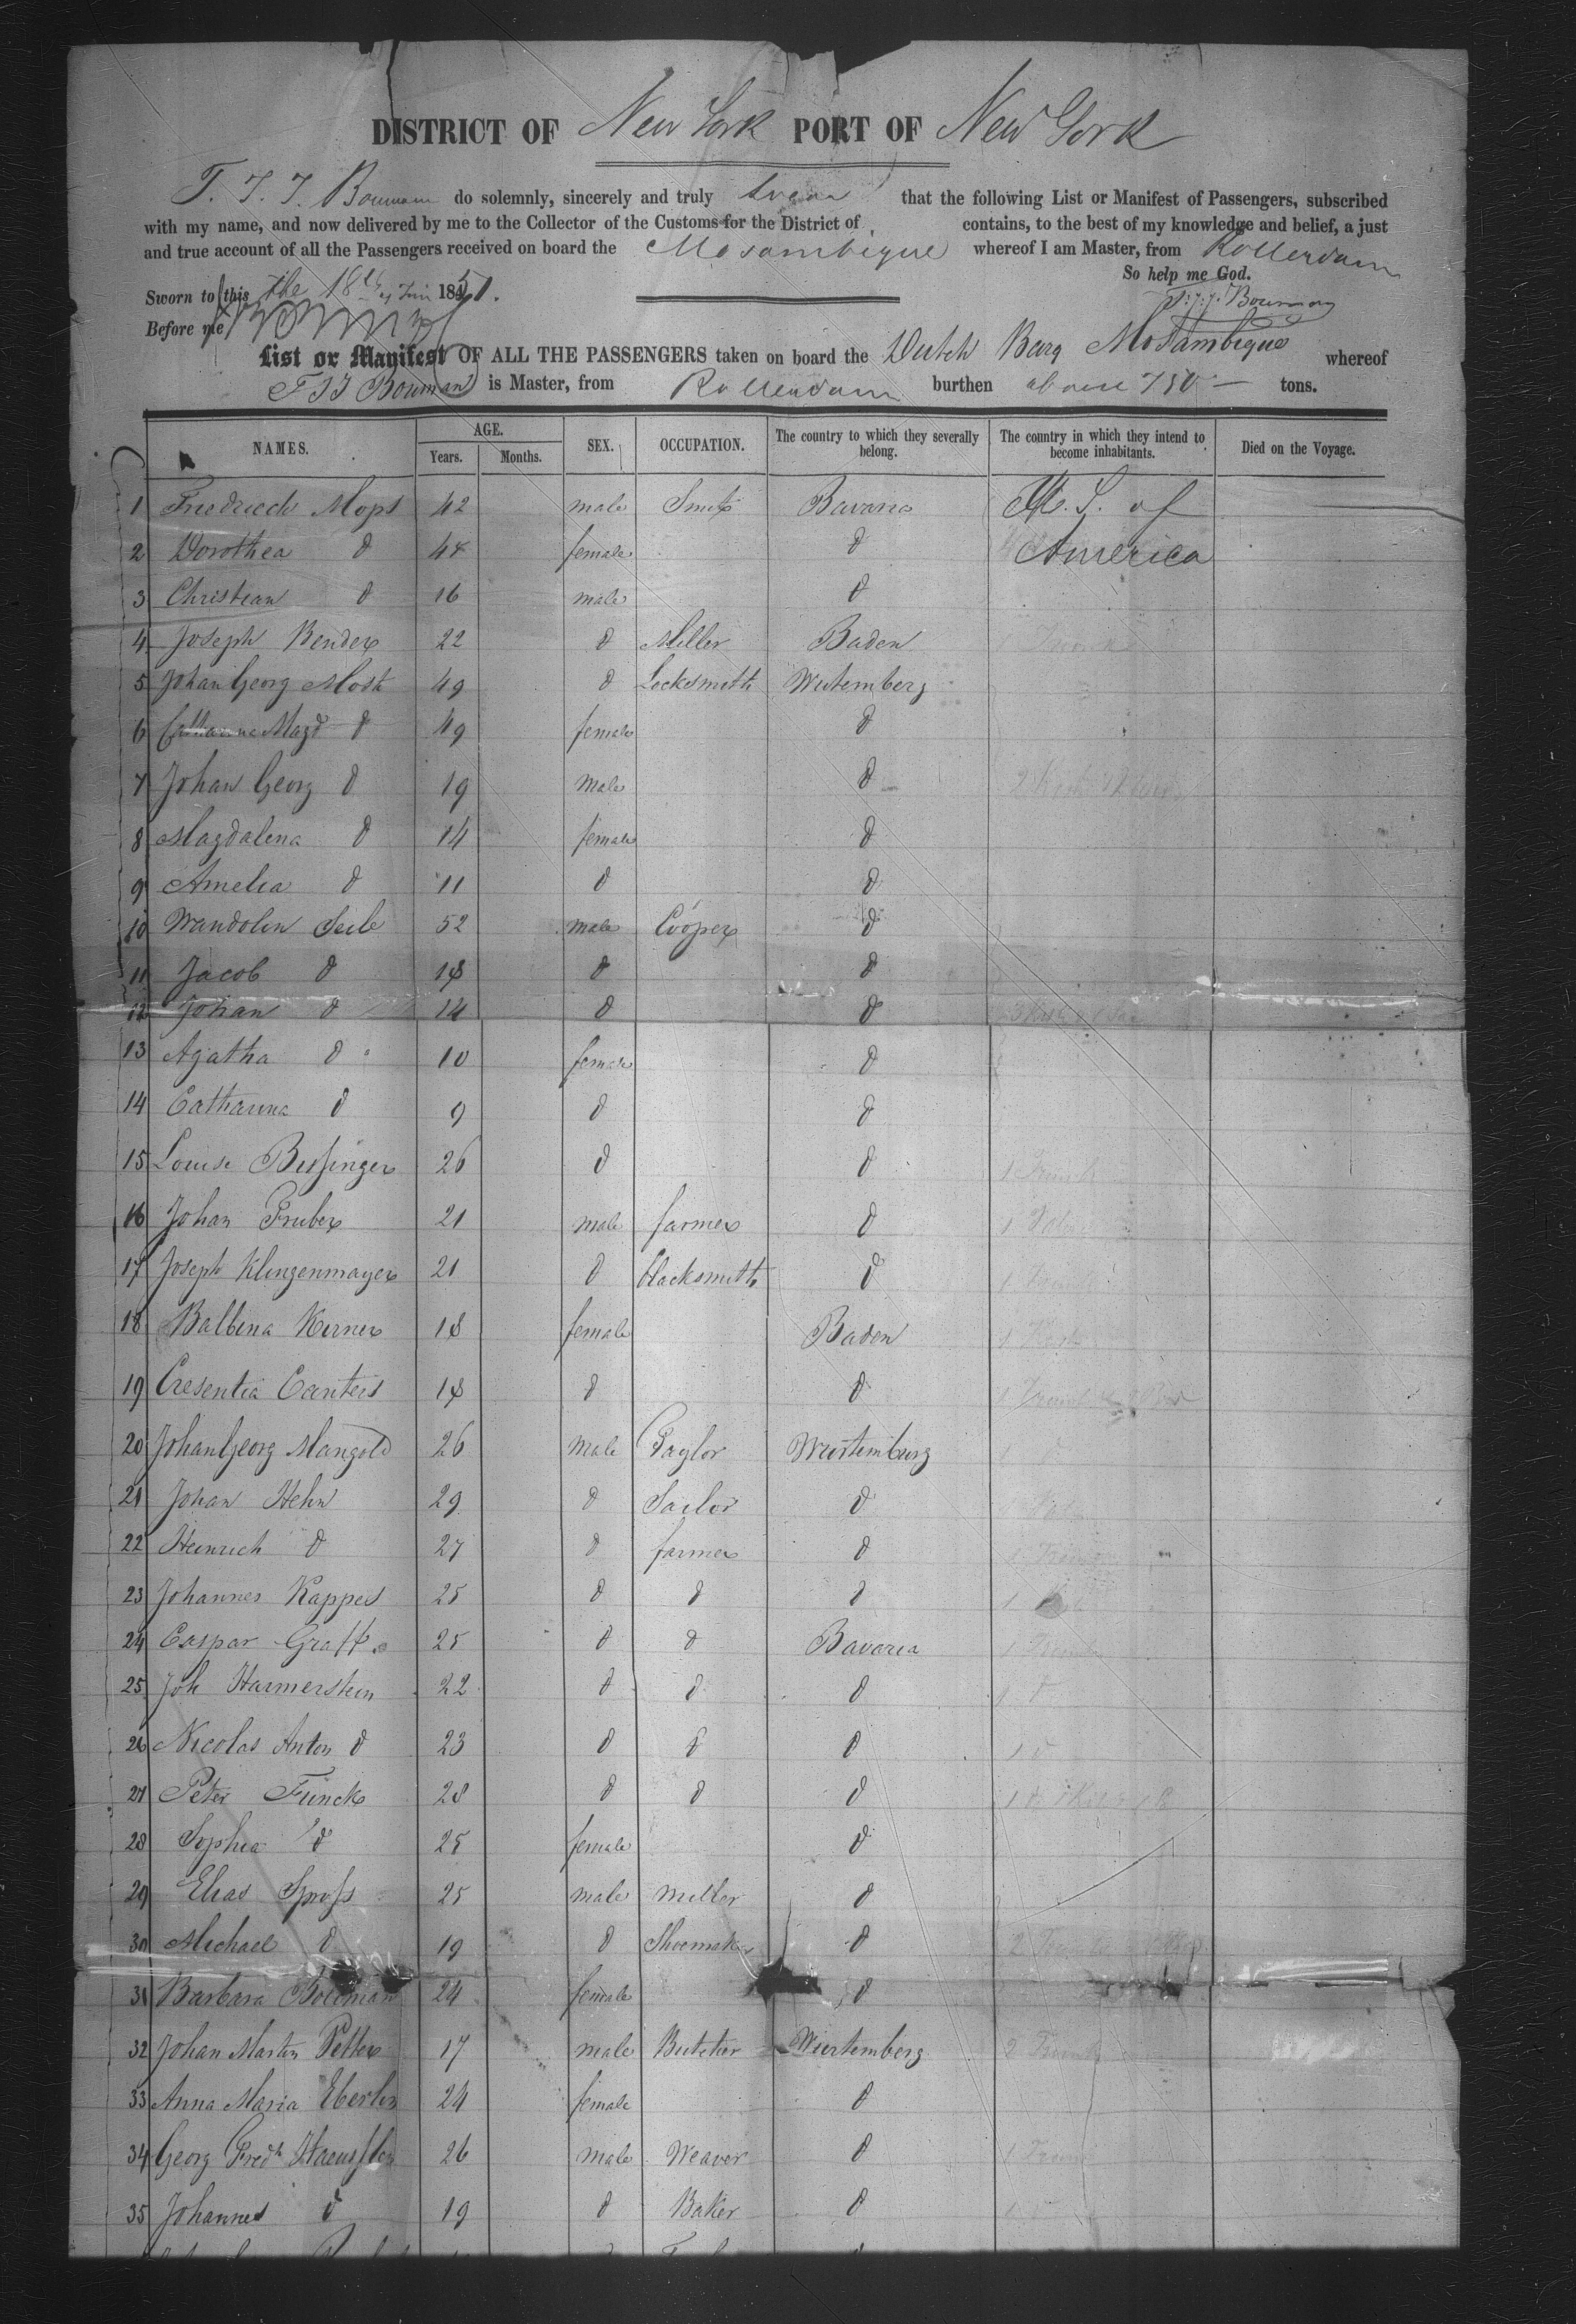 DISTRICT OF New York PORT OF New York
T. J. J. Bouman do solemnly, sincerely and truly swear that the following List or Manifest of Passengers, subscribed
with my name, and now delivered by me to the Collector of the Customs for the District of contains, to the best of my knowledge and belief, a just
and true account of all the Passengers received on board the Mosambique whereof I am Master, from Rotterdam
So help me God.
Sworn to this the 18th 1851.
T. J. J. Bouman
Before me
List or Manifest OF ALL THE PASSENGERS taken on board the Dutch Barq Mosambique whereof
T J J Bouman is Master, from Rotterdam burthen about 750 tons.
NAMES. AGE. Years. Months. SEX. OCCUPATION. The country to which they severally belong. The country in which they intend to become inhabitants. Died on the Voyage.
1 Friedrich Mops 42 male Smith Bavaria U. S. of
2 Dorothea d 44 female d America
3 Christian d 16 male d
4 Joseph Bender 22 d Miller Baden
5 Johan Georg Mosh 49 d Locksmith Wurtemberg
6 Catharina Magd d 49 female d
7 Johan Georg d 19 male d
8 Magdalena d 14 female d
9 Amelia d 11 d d
10 Wandolin Seile 52 male Cooper d
11 Jacob d 18 d d
12 Johan d 14 d d
13 Agatha d 10 female d
14 Catharina d 9 d d
15 Louise Bussinger 26 d d
16 Johan Gruber 21 male farmer d
17 Joseph Klingenmayer 21 d blacksmith d
18 Balbina Kerner 18 female Baden
19 Cresentia Canteis 18 d d
20 Johan Georg Mangold 26 male Taylor Wurtemburg
21 Johan Hehn 29 d Sailor d
22 Heinrich d 27 d farmer d
23 Johannes Kappes 25 d d d
24 Caspar Graff 25 d d Bavaria
25 Joh Harmerstein 22 d d d
26 Nicolas Anton d 23 d d d
27 Peter Funck 28 d d d
28 Sophia d 25 female d
29 Elias Spross 25 male miller d
30 Michael d 19 d Shoemaker d
31 Barbara Bollman 24 female d
32 Johan Martin Petter 17 male Butcher Wurtemberg
33 Anna Maria Eberlin 24 female d
34 Georg Fredk Haeussler 26 male Weaver d
35 Johannes d 19 d Baker d